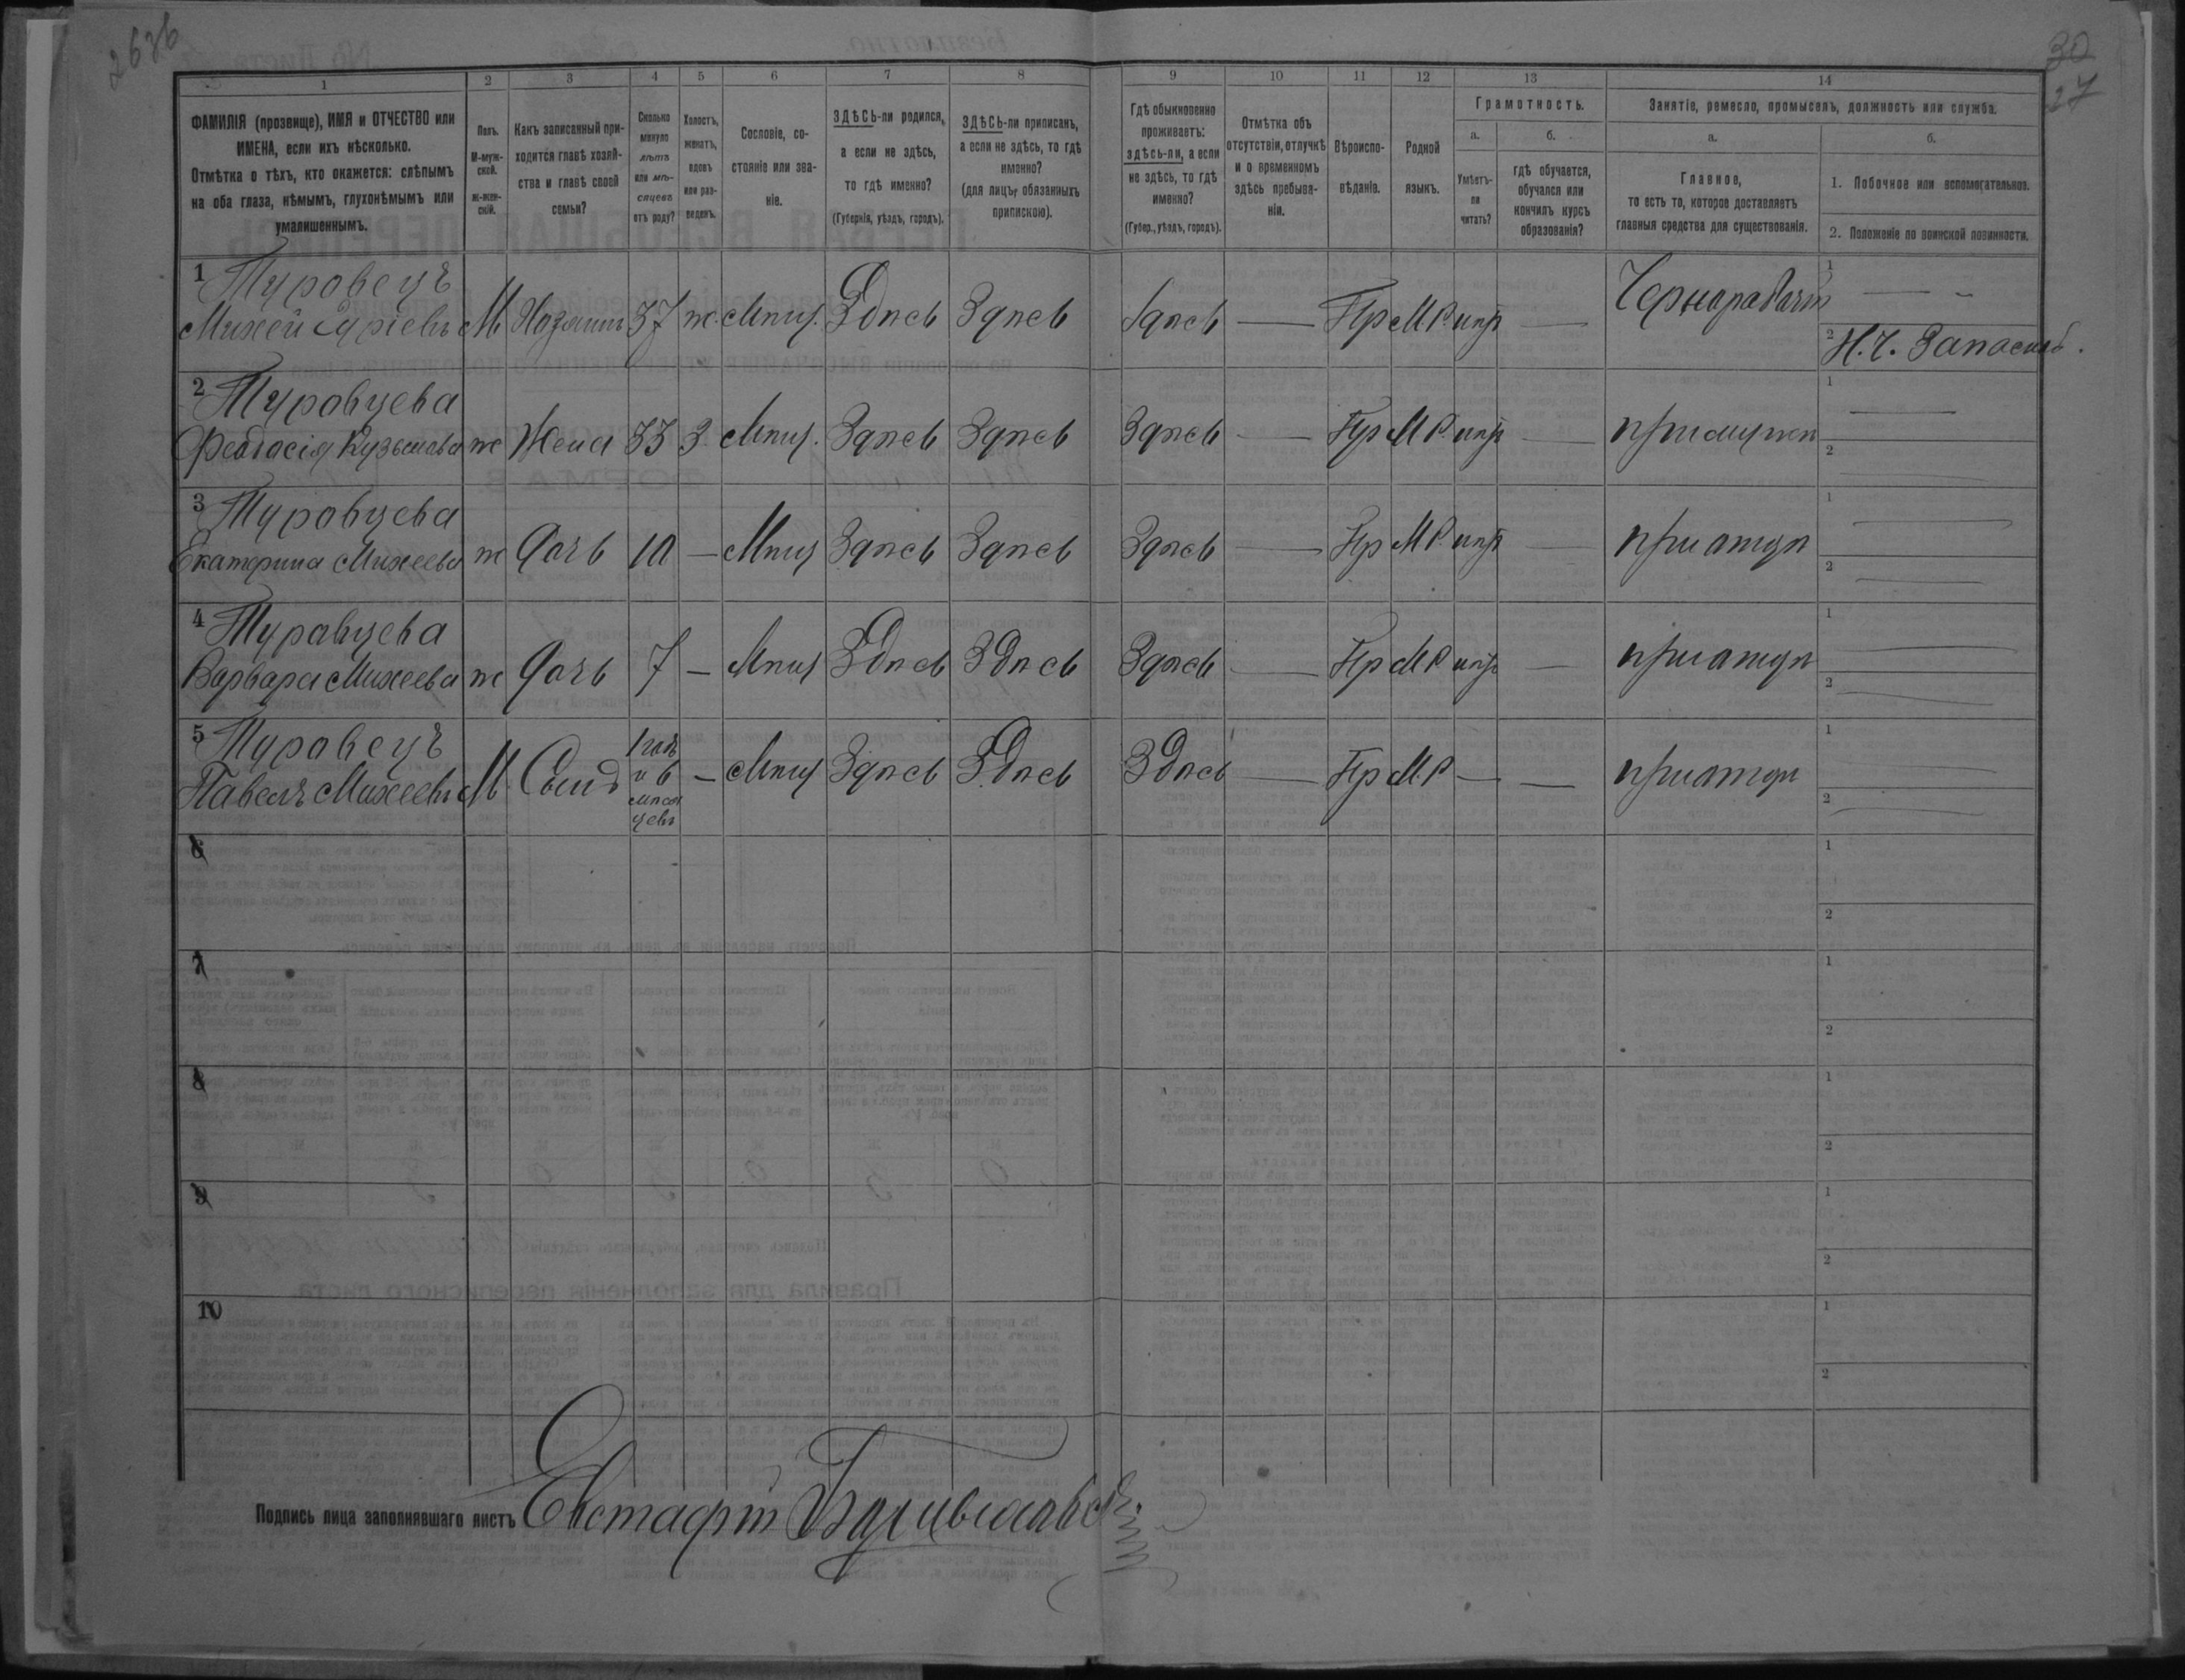 30
27
1 2 3 4 5 6 7 8 9 10 11 12 13 14
ФАМИЛІЯ (прозвище), ИМЯ и ОТЧЕСТВО или
ИМЕНА, если ихъ нѣсколько.
Отмѣтка о тѣхъ, кто окажется: слѣпымъ
на оба глаза, нѣмымъ, глухонѣмымъ или
умалишеннымъ.
Полъ.
М-муж-
ской.
Ж-жен-
скій.
Какъ записанный при-
ходится главѣ хозяй-
ства и главѣ своей
семьи?
Сколько
минуло
лѣтъ
или мѣ-
сяцевъ
отъ роду?
Холостъ,
женатъ,
вдовъ
или раз-
веденъ.
Сословіе, со-
стояніе или зва-
ніе.
ЗДѢСЬ-ли родился,
а если не здѣсь,
то гдѣ именно?
(Губернія, уѣздъ, городъ).
ЗДѢСЬ-ли приписанъ,
а если не здѣсь, то гдѣ
именно?
(для лицъ, обязанныхъ
припискою).
Гдѣ обыкновенно
проживаетъ:
здѣсь-ли, а если
не здѣсь, то гдѣ
именно?
(Губер., уѣздъ, городъ).
Отмѣтка объ
отсутствіи, отлучкѣ
и о временномъ
здѣсь пребыва-
ніи.
Вѣроиспо-
вѣданіе.
Родной
языкъ.
Грамотность.
а. б.
Умѣетъ-
ли
читать?
гдѣ обучается,
обучался или
кончилъ курсъ
образованія?
Занятіе, ремесло, промыселъ, должность или служба.
а. б.
Главное,
то есть то, которое доставляетъ
главныя средства для существованія.
1. Побочное или вспомогательное.
2. Положеніе по воинской повинности.
1 Туровецъ
Михей Юріевъ М Хозяинъ 37 ж. Мѣщ. Здѣсь Здѣсь Здѣсь — Пр М.Р. нѣт — Чернорабоч
1 —
2 Н.Ч. Запаса
2 Туровцева
Феодосія Кузьмова ж Жена 33 З. Мѣщ. Здѣсь Здѣсь Здѣсь — Пр М.Р. нѣт — при мужѣ
1 —
2 —
3 Туровцева
Екатерина Михеева ж Дочь 10 — Мѣщ Здѣсь Здѣсь Здѣсь — Пр М.Р. нѣт — при отцѣ
1 —
2 —
4 Туровцева
Варвара Михеева ж Дочь 7 — Мѣщ Здѣсь Здѣсь Здѣсь — Пр М.Р. нѣт — при отцѣ
1 —
2 —
5 Туровецъ
Павелъ Михеевъ М. Сынъ 1 годъ и 6 мѣся цевъ — Мѣщ Здѣсь Здѣсь Здѣсь — Пр М.Р. — — при отцѣ
1 —
2 —
6
1
2
7
1
2
8
1
2
9
1
2
10
1
2
Подпись лица заполнявшаго листъ Евстафій